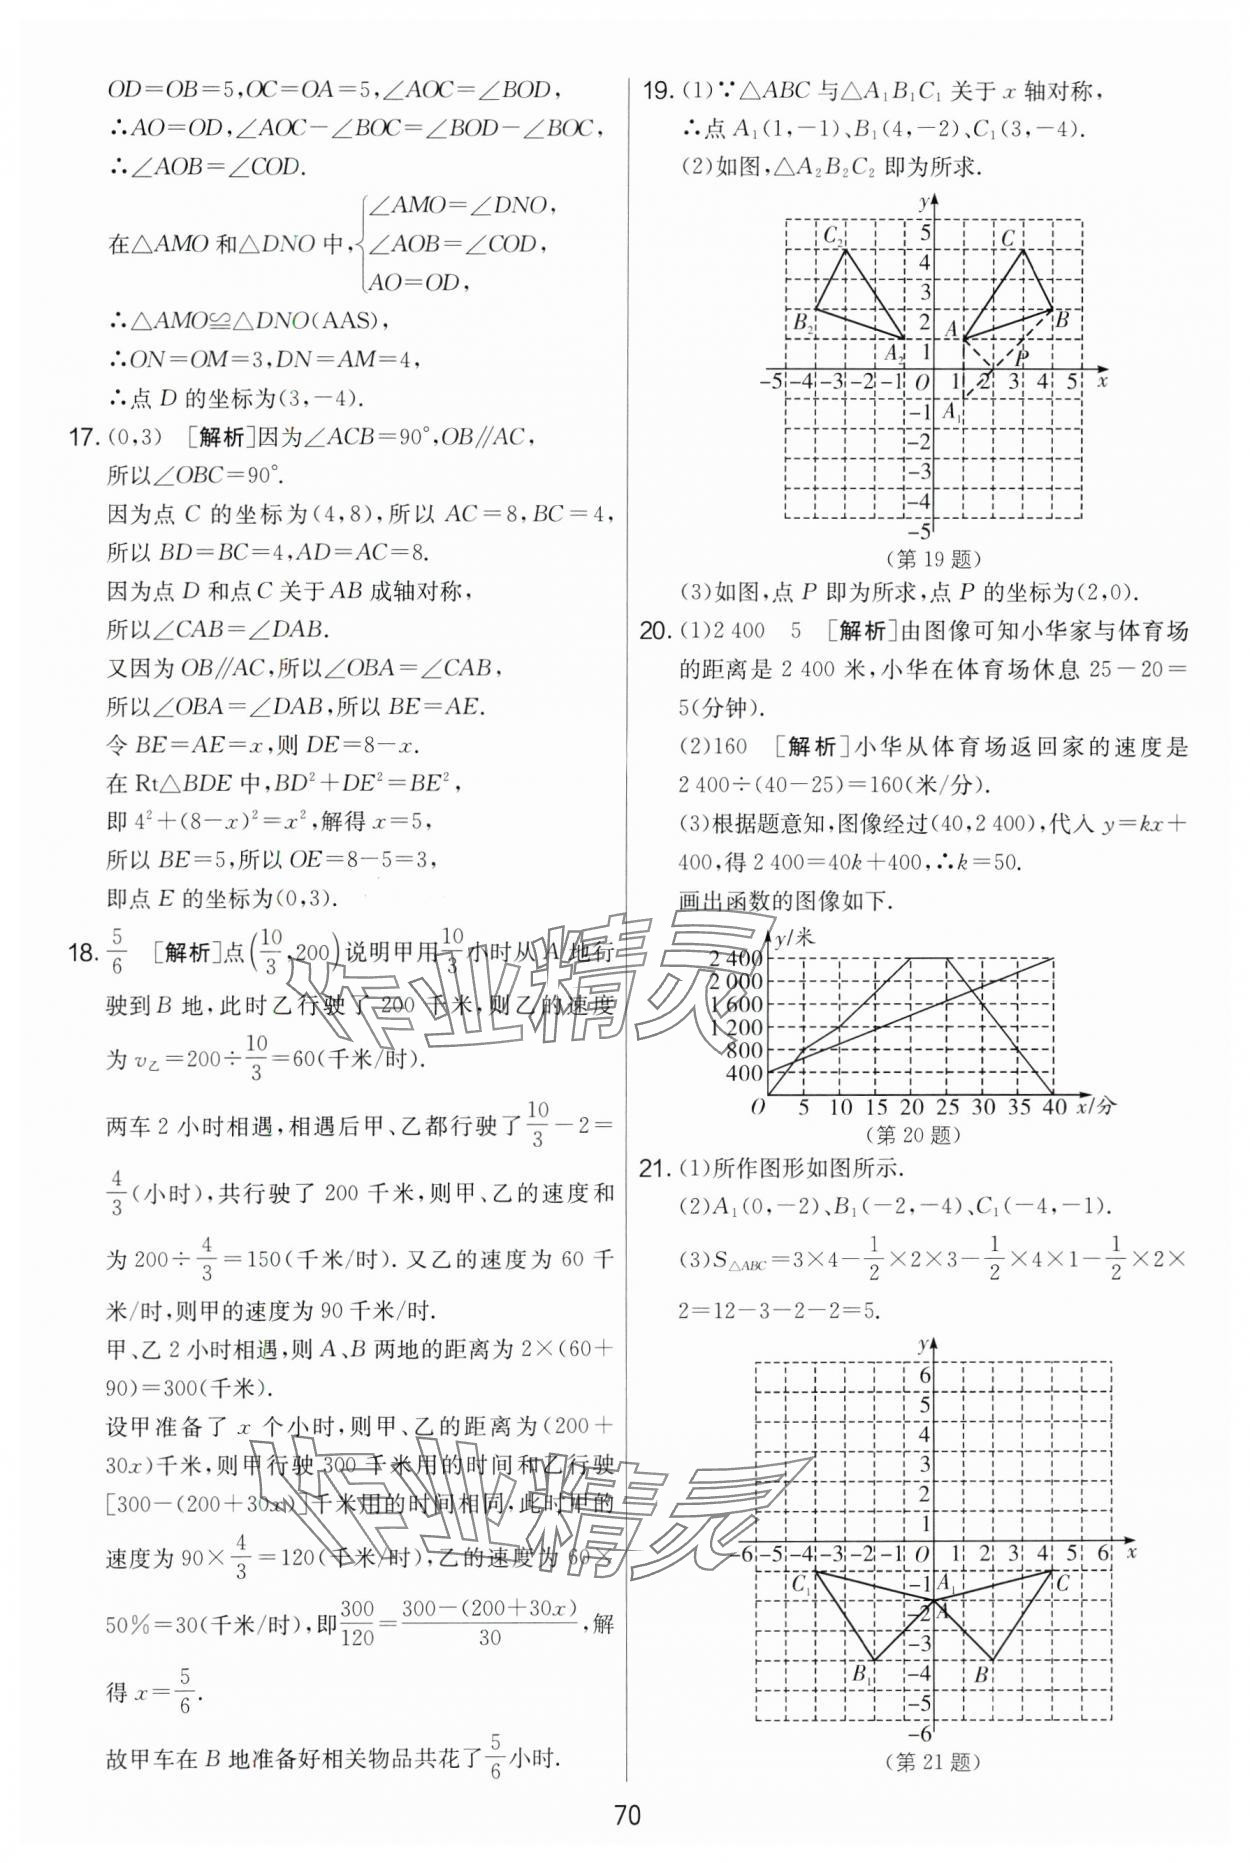 OD=OB=5,OC=OA=5,∠AOC=∠BOD,
∴AO=OD,∠AOC-∠BOC=∠BOD-∠BOC,
∴∠AOB=∠COD.
在△AMO和△DNO中,{∠AMO=∠DNO,
∠AOB=∠COD,
AO=OD,
∴△AMO≌△DNO(AAS),
∴ON=OM=3,DN=AM=4,
∴点D的坐标为(3,-4).
17. (0,3) [解析]因为∠ACB=90°,OB∥AC,
所以∠OBC=90°.
因为点C的坐标为(4,8),所以AC=8,BC=4,
所以BD=BC=4,AD=AC=8.
因为点D和点C关于AB成轴对称,
所以∠CAB=∠DAB.
又因为OB∥AC,所以∠OBA=∠CAB,
所以∠OBA=∠DAB,所以BE=AE.
令BE=AE=x,则DE=8-x.
在Rt△BDE中,BD²+DE²=BE²,
即4²+(8-x)²=x²,解得x=5,
所以BE=5,所以OE=8-5=3,
即点E的坐标为(0,3).
18. 5/6 [解析]点(10/3,200)说明甲用10/3小时从A地行
驶到B地,此时乙行驶了200千米,则乙的速度
为v乙=200÷10/3=60(千米/时).
两车2小时相遇,相遇后甲、乙都行驶了10/3-2=
4/3(小时),共行驶了200千米,则甲、乙的速度和
为200÷4/3=150(千米/时).又乙的速度为60千
米/时,则甲的速度为90千米/时.
甲、乙2小时相遇,则A、B两地的距离为2×(60+
90)=300(千米).
设甲准备了x个小时,则甲、乙的距离为(200+
30x)千米,则甲行驶300千米用的时间和乙行驶
[300-(200+30x)]千米用的时间相同,此时甲的
速度为90×4/3=120(千米/时),乙的速度为60×
50%=30(千米/时),即300/120=(300-(200+30x))/30,解
得x=5/6.
故甲车在B地准备好相关物品共花了5/6小时.
19. (1)∵△ABC与△A₁B₁C₁关于x轴对称,
∴点A₁(1,-1)、B₁(4,-2)、C₁(3,-4).
(2)如图,△A₂B₂C₂即为所求.
y
5
C₂ C
4
3
B₂ 2 A B
A₂ 1 P
-5 -4 -3 -2 -1 O 1 2 3 4 5 x
-1 A₁
-2
-3
-4
-5
(第19题)
(3)如图,点P即为所求,点P的坐标为(2,0).
20. (1)2 400 5 [解析]由图像可知小华家与体育场
的距离是2 400米,小华在体育场休息25-20=
5(分钟).
(2)160 [解析]小华从体育场返回家的速度是
2 400÷(40-25)=160(米/分).
(3)根据题意知,图像经过(40,2 400),代入y=kx+
400,得2 400=40k+400,∴k=50.
画出函数的图像如下.
y/米
2 400
2 000
1 600
1 200
800
400
O 5 10 15 20 25 30 35 40 x/分
(第20题)
21. (1)所作图形如图所示.
(2)A₁(0,-2)、B₁(-2,-4)、C₁(-4,-1).
(3)S△ABC=3×4-1/2×2×3-1/2×4×1-1/2×2×
2=12-3-2-2=5.
y
6
5
4
3
2
1
-6 -5 -4 -3 -2 -1 O 1 2 3 4 5 6 x
C₁ -1 A₁ C
-2 A
-3
B₁ -4 B
-5
-6
(第21题)
作业精灵
作业精灵
70